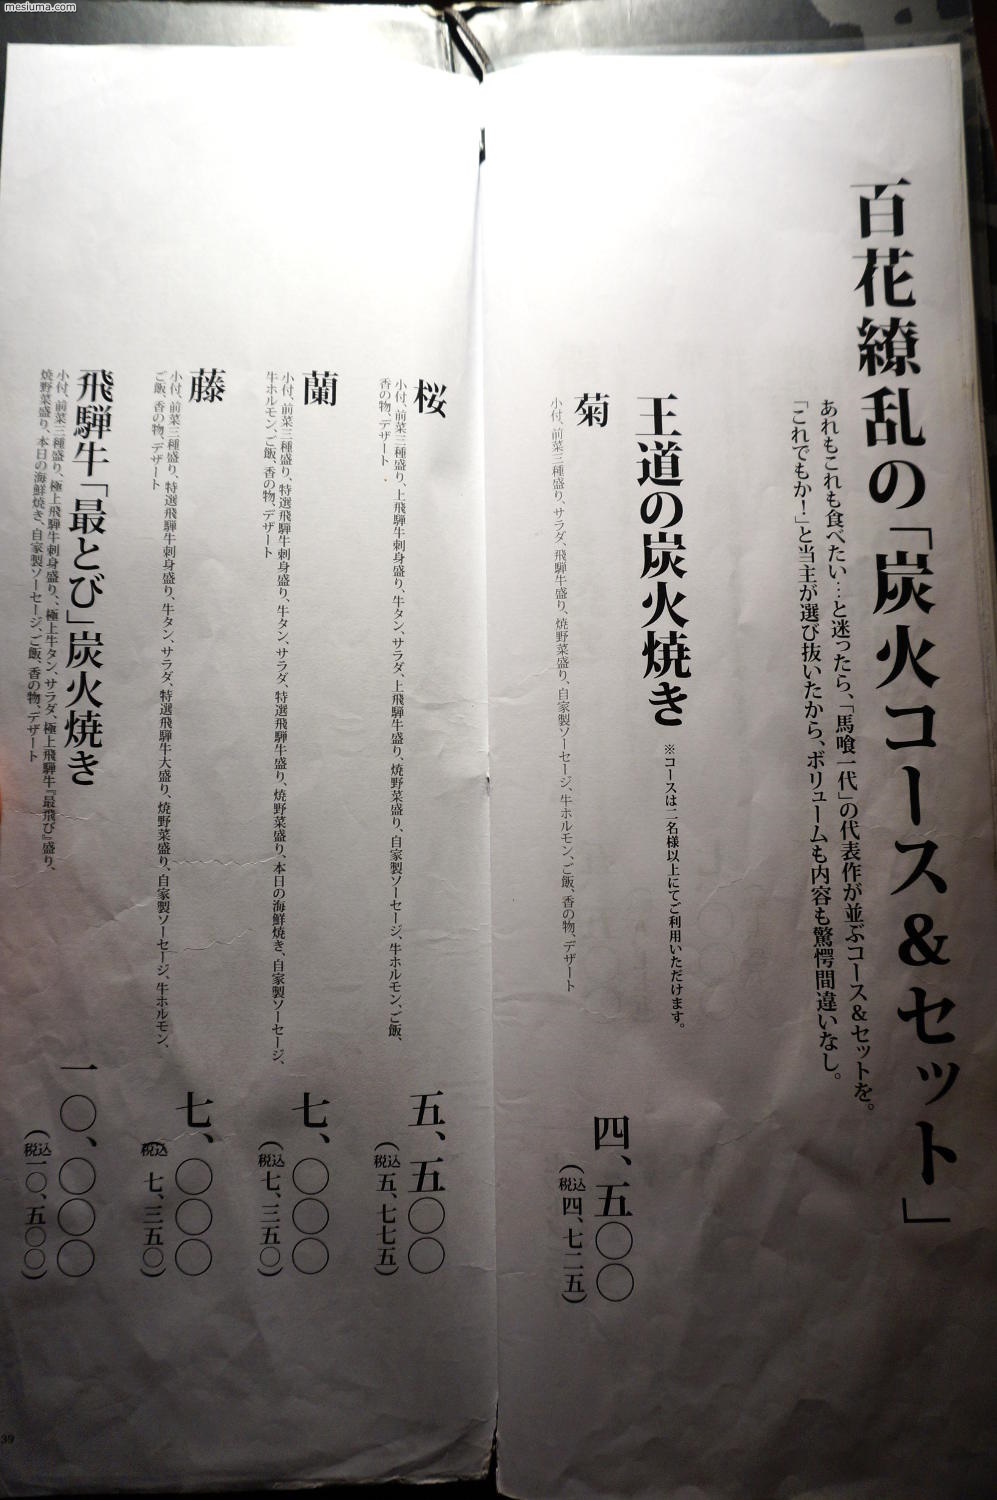 mesiuma.com
百花繚乱の「炭火コース&セット」
あれもこれも食べたい…と迷ったら、「馬喰一代」の代表作が並ぶコース&セットを。
「これでもか!」と当主が選び抜いたから、ボリュームも内容も驚愕間違いなし。
王道の炭火焼き ※コースは二名様以上にてご利用いただけます。
菊 四、五〇〇
小付、前菜三種盛り、サラダ、飛騨牛盛り、焼野菜盛り、自家製ソーセージ、牛ホルモン、ご飯、香の物、デザート (税込四、七二五)
桜 五、五〇〇
小付、前菜三種盛り、上飛騨牛刺身盛り、牛タン、サラダ、上飛騨牛盛り、焼野菜盛り、自家製ソーセージ、牛ホルモン、ご飯、
香の物、デザート (税込五、七七五)
蘭 七、〇〇〇
小付、前菜三種盛り、特選飛騨牛刺身盛り、牛タン、サラダ、特選飛騨牛盛り、焼野菜盛り、本日の海鮮焼き、自家製ソーセージ、
牛ホルモン、ご飯、香の物、デザート (税込七、三五〇)
藤 七、〇〇〇
小付、前菜三種盛り、特選飛騨牛刺身盛り、牛タン、サラダ、特選飛騨牛大盛り、焼野菜盛り、自家製ソーセージ、牛ホルモン、
ご飯、香の物、デザート (税込七、三五〇)
飛騨牛「最とび」炭火焼き 一〇、〇〇〇
小付、前菜三種盛り、極上飛騨牛刺身盛り、極上牛タン、サラダ、極上飛騨牛『最飛び』盛り、
焼野菜盛り、本日の海鮮焼き、自家製ソーセージ、ご飯、香の物、デザート (税込一〇、五〇〇)
39